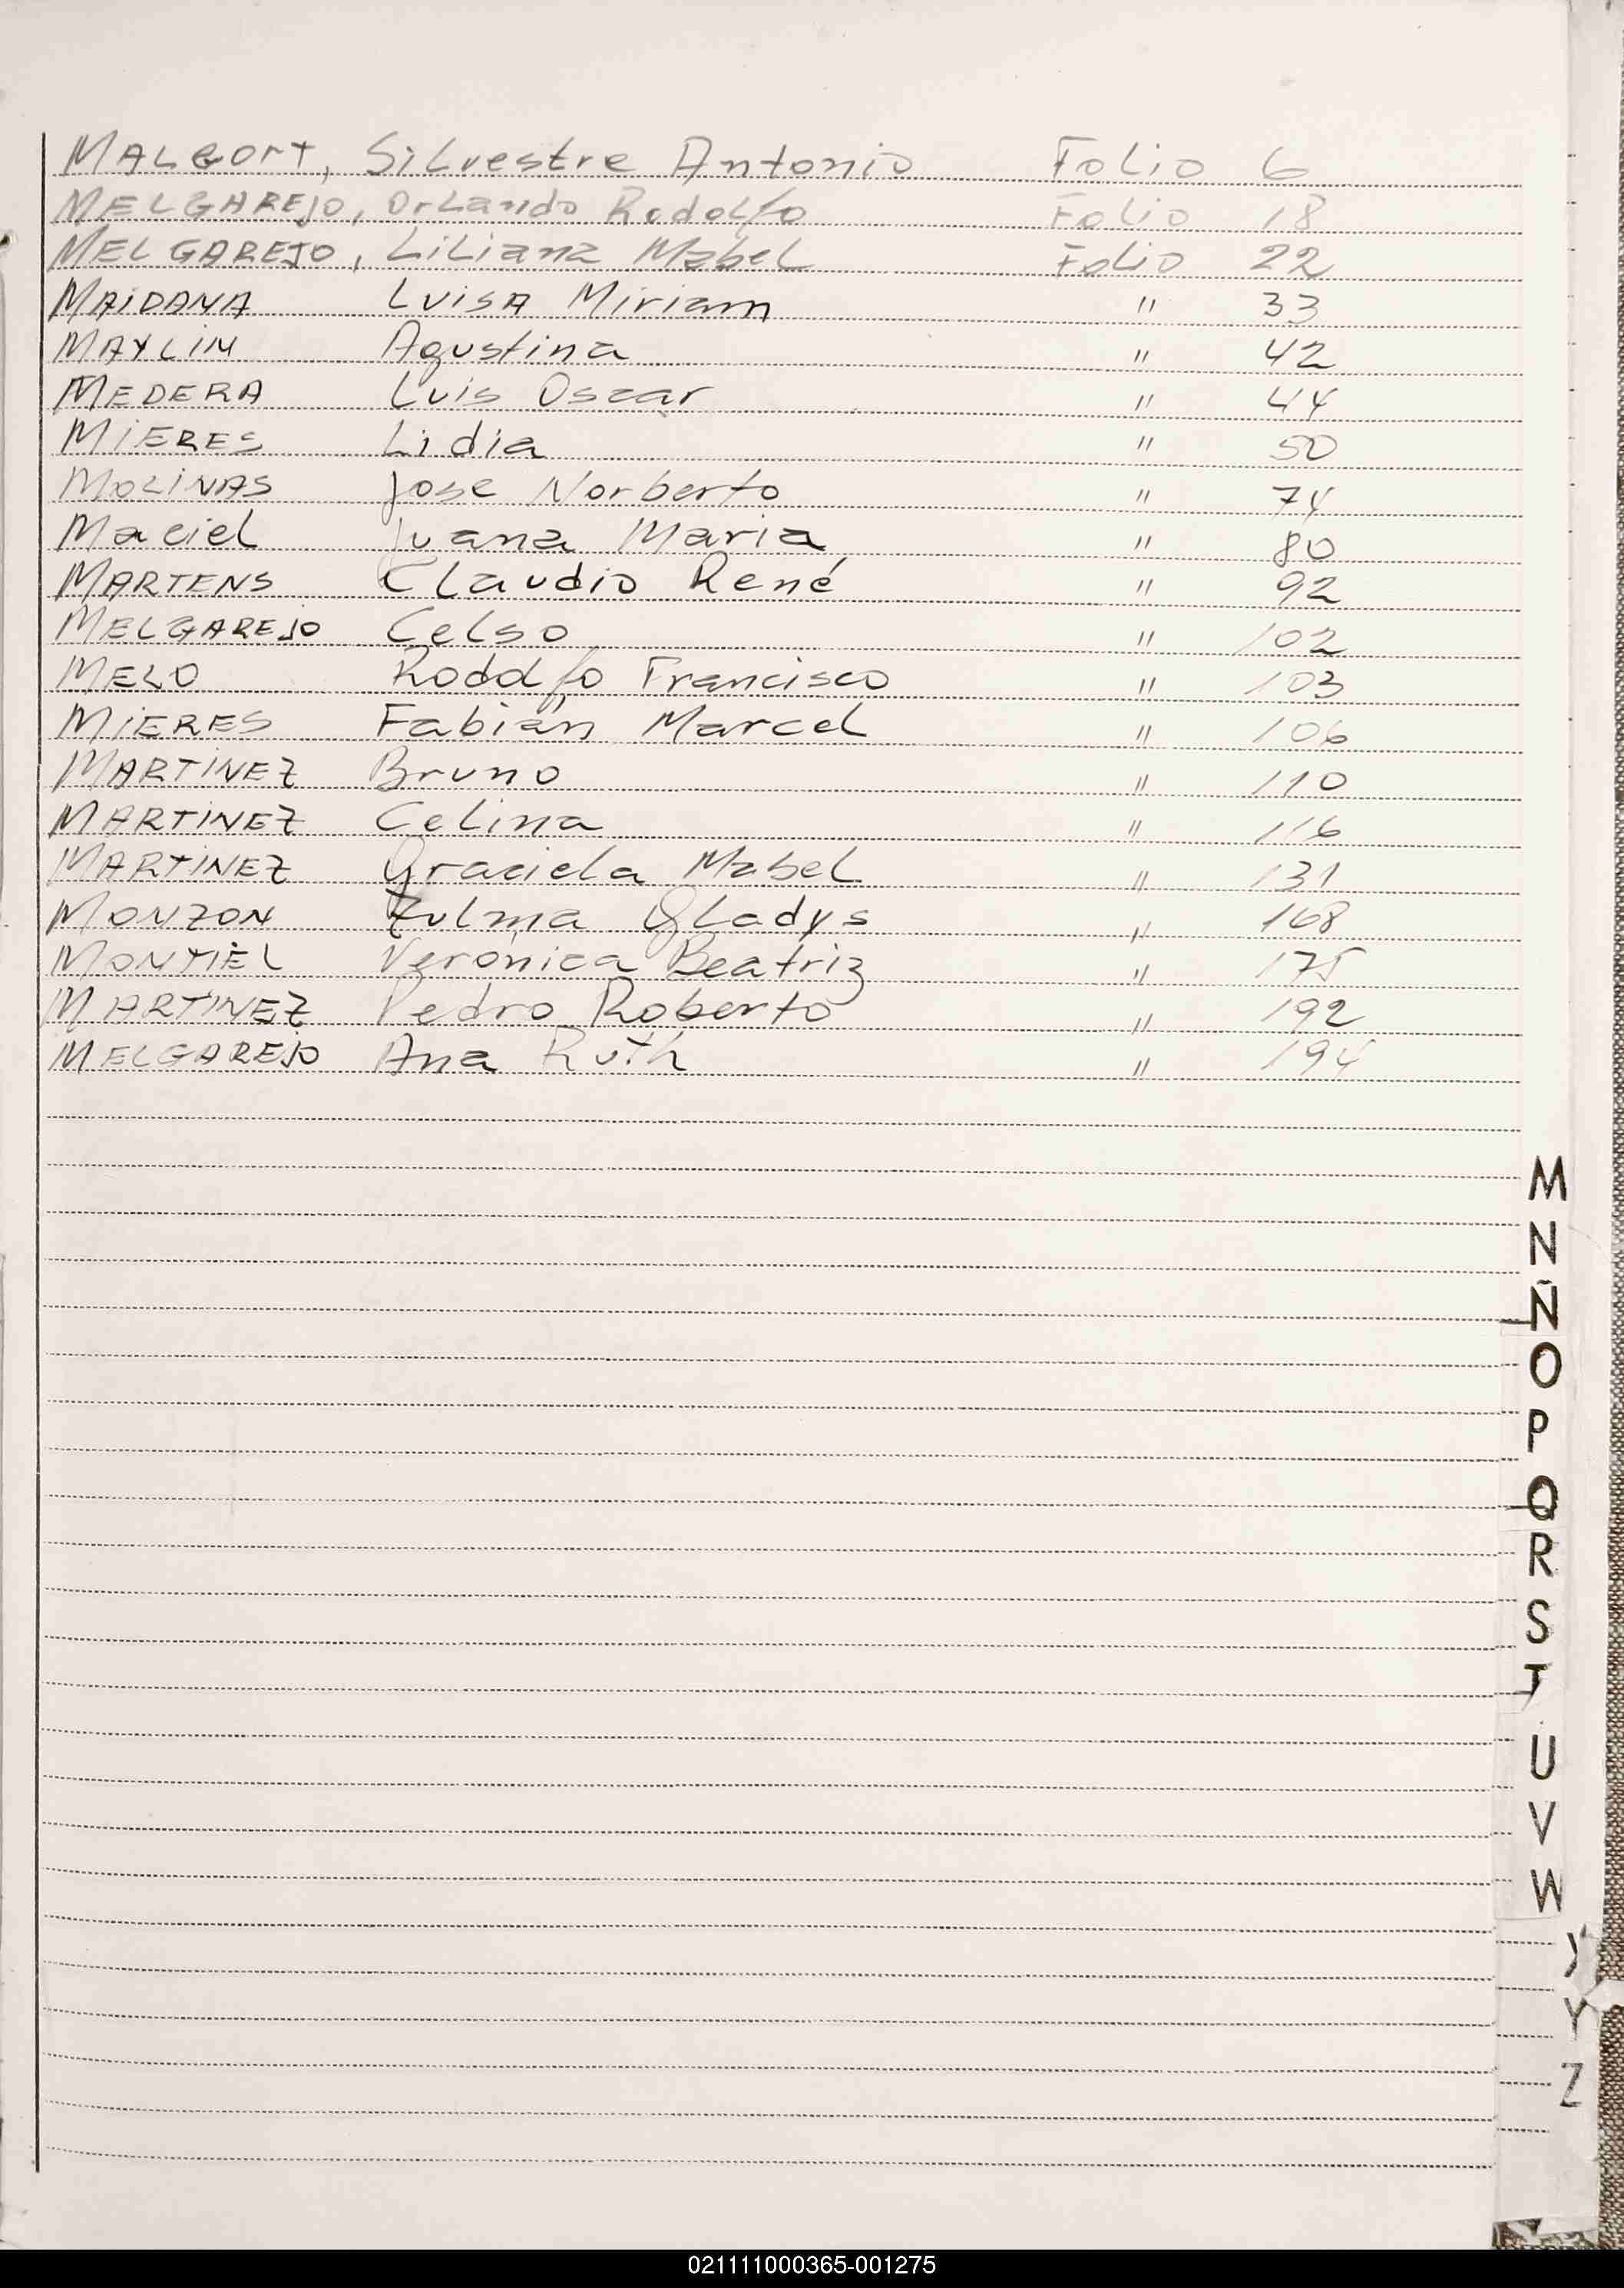 MALGORT, Silvestre Antonio Folio 6
MELGAREJO, Orlando Rodolfo Folio 18
MELGAREJO, Liliana Mabel Folio 22
MAIDANA Luisa Miriam " 33
MAYLIN Agustina " 42
MEDERA Luis Oscar " 44
MIERES Lidia " 50
MOLINAS Jose Norberto " 74
Maciel Juana Maria " 80
MARTENS Claudio René " 92
MELGAREJO Celso " 102
MELO Rodolfo Francisco " 103
MIERES Fabián Marcel " 106
MARTINEZ Bruno " 110
MARTINEZ Celina " 116
MARTINEZ Graciela Mabel " 131
MONZON Zulma Gladys " 168
MONTIEL Verónica Beatriz " 175
MARTINEZ Pedro Roberto " 192
MELGAREJO Ana Ruth " 194
M
N
Ñ
O
P
Q
R
S
T
U
V
W
X
Y
Z
021111000365-001275